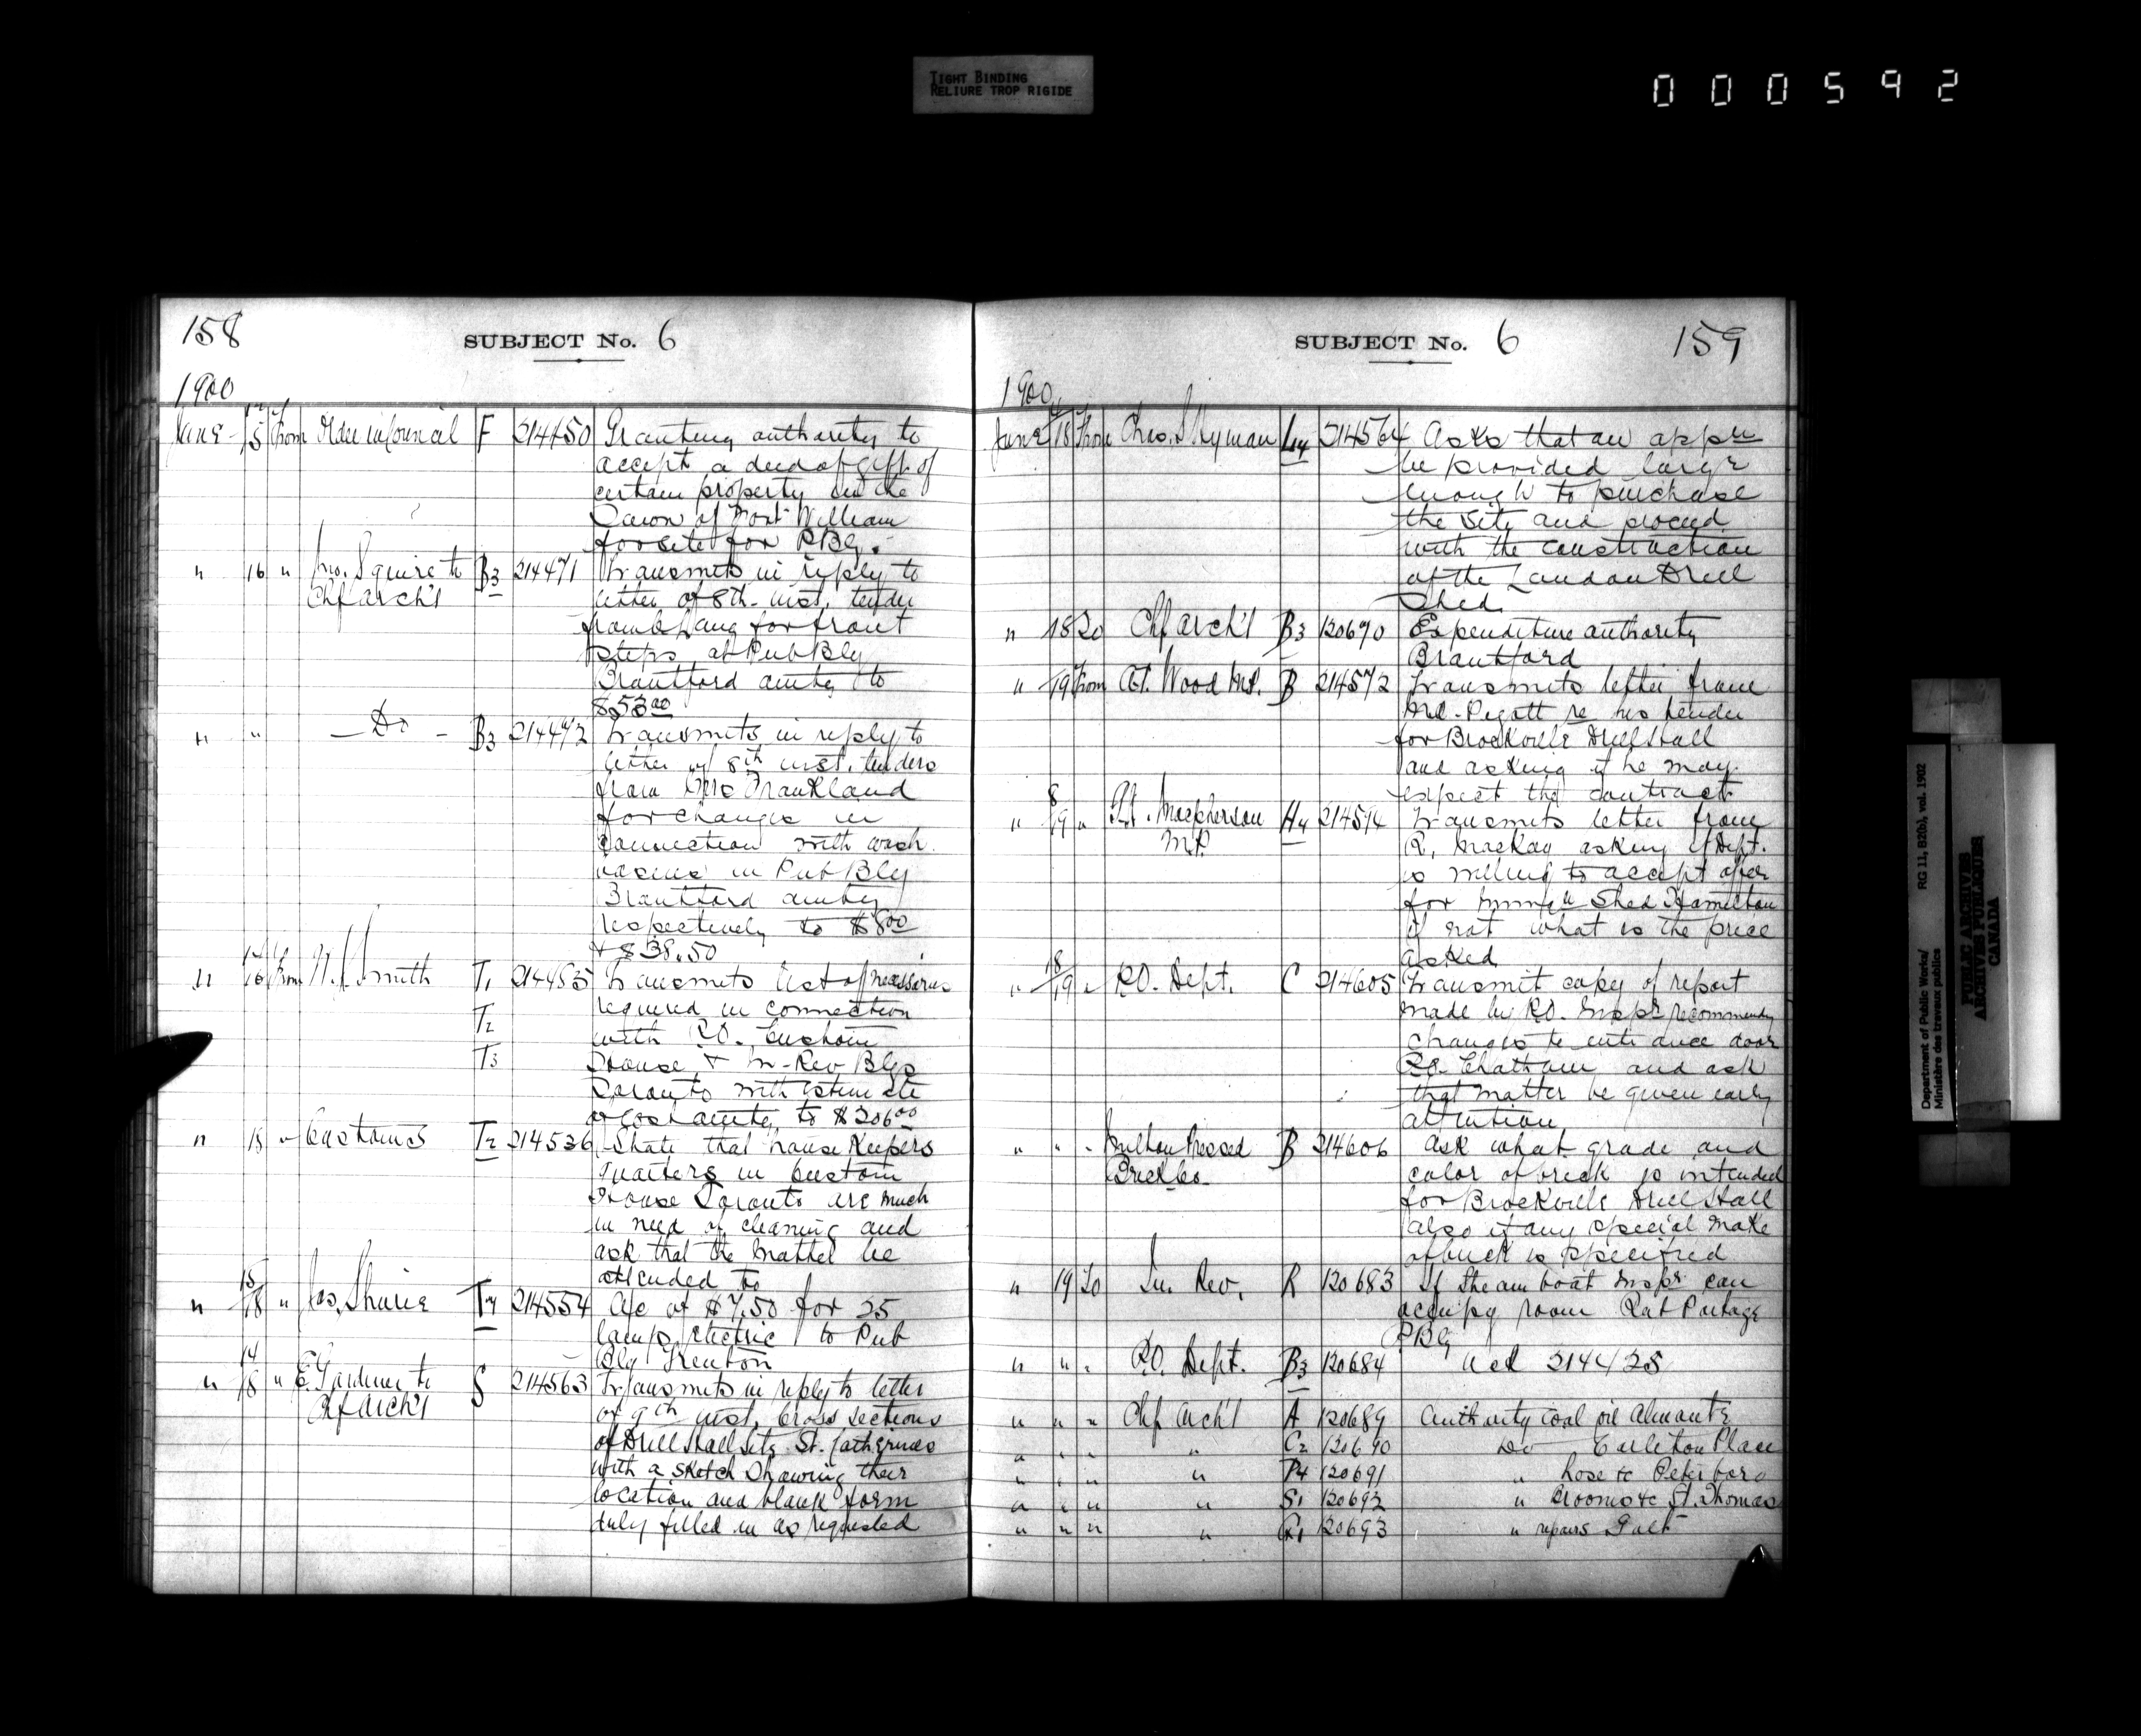 TIGHT BINDING
RELIURE TROP RIGIDE
000592
158
SUBJECT No. 6
1900
June 15 From Order in Council F 214450 Granting authority to
accept a deed of gift of
certain property in the
Town of Fort William
for site for P Bg.
" 16 " Jno. Squire to B3 214471 Transmits in reply to
Chf Arch't letter of 8th inst, tender
from Lang for front
steps at Pub Bly
Brantford amtg to
$53.00
" " — Do — B3 214472 Transmits in reply to
letter of 8th inst. tenders
from Frankland
for changes in
connection with wash
basins in Pub Bly
Brantford amtg
respectively to $8.00
& $38.50
" 16 From Smith T1 214485 Transmits list of necessaries
T2 required in connection
with P.O. Custom
T3 House & In-Rev Blgs
Toronto with estimate
of cost amtg to $206.00
" 18 " Customs T2 214536 State that house Keepers
quarters in Custom
House Toronto are much
in need of cleaning and
ask that the matter be
attended to
" 15/18 " Jas. Shurie T4 214554 A/c of $7.50 for 25
lamps electric to Pub
Blg Trenton
" 14/18 " E. Gardiner to S 214563 Transmits in reply to letter
Chf Arch't of 9th inst, cross sections
of Drill Hall Site St. Catherines
with a sketch showing their
location and blank form
duly filled in as requested
SUBJECT No. 6
159
1900
June 18 From Chas. S. Hyman L4 214564 Asks that an appn
be provided large
enough to purchase
the site and proceed
with the construction
of the London Drill
Shed
" 18 To Chf Arch't B3 120670 Expenditure authority
Brantford
" 19 From Wood M.P. B 214572 Transmits letter from
re his tender
for Brockville Drill Hall
and asking if he may
expect the contract
" 8/19 " Macpherson H4 214594 Transmits letter from
M.P. R. MacKay asking if Dept.
is willing to accept offer
for Shed Hamilton
if not what is the price
asked
" 18/19 " P.O. Dept. C 214605 Transmit copy of report
made by P.O. Inspr recommendg
changes to entrance door
P.O. Chatham and ask
that matter be given early
attention
" " " Milton Pressed B 214606 Ask what grade and
Brick Co. color of brick is intended
for Brockville Drill Hall
also if any special make
of brick is specified
" 19 To In. Rev. R 120683 If Steam boat Inspr can
occupy room Rat Portage
P Blg
" " " P.O. Dept. B3 120684 Ack 214428
" " " Chf Arch't A 120689 Authority coal oil Almonte
" " " " C2 120690 Do Carleton Place
" " " " P4 120691 " hose &c Peterboro
" " " " S1 120692 " brooms &c St. Thomas
" " " " G1 120693 " repairs Galt
Department of Public Works/
Ministère des travaux publics
RG 11, B2(b), vol. 1902
PUBLIC ARCHIVES
ARCHIVES PUBLIQUES
CANADA